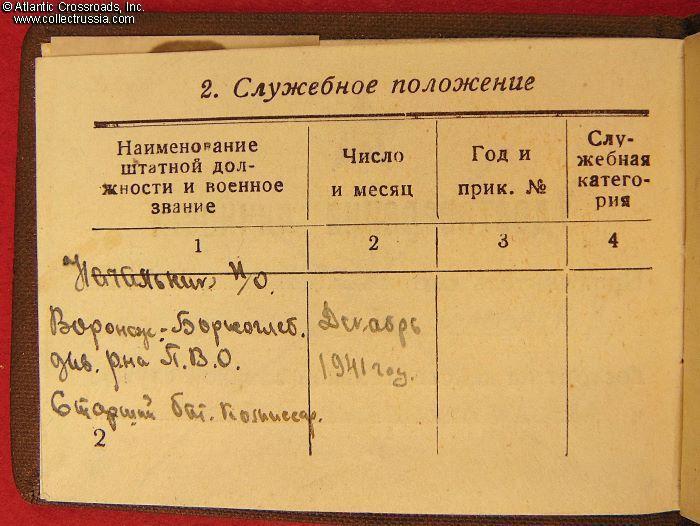 © Atlantic Crossroads, Inc.
www.collectrussia.com
2. Служебное положение
Наименование штатной дол- жности и военное звание
Число и месяц
Год и прик. №
Слу- жебная катего- рия
1 2 3 4
Начальник п/о.
Воронеж.-Борисоглеб. Декабрь
див. р-на П.В.О. 1941 год.
Старший бат. комиссар.
2